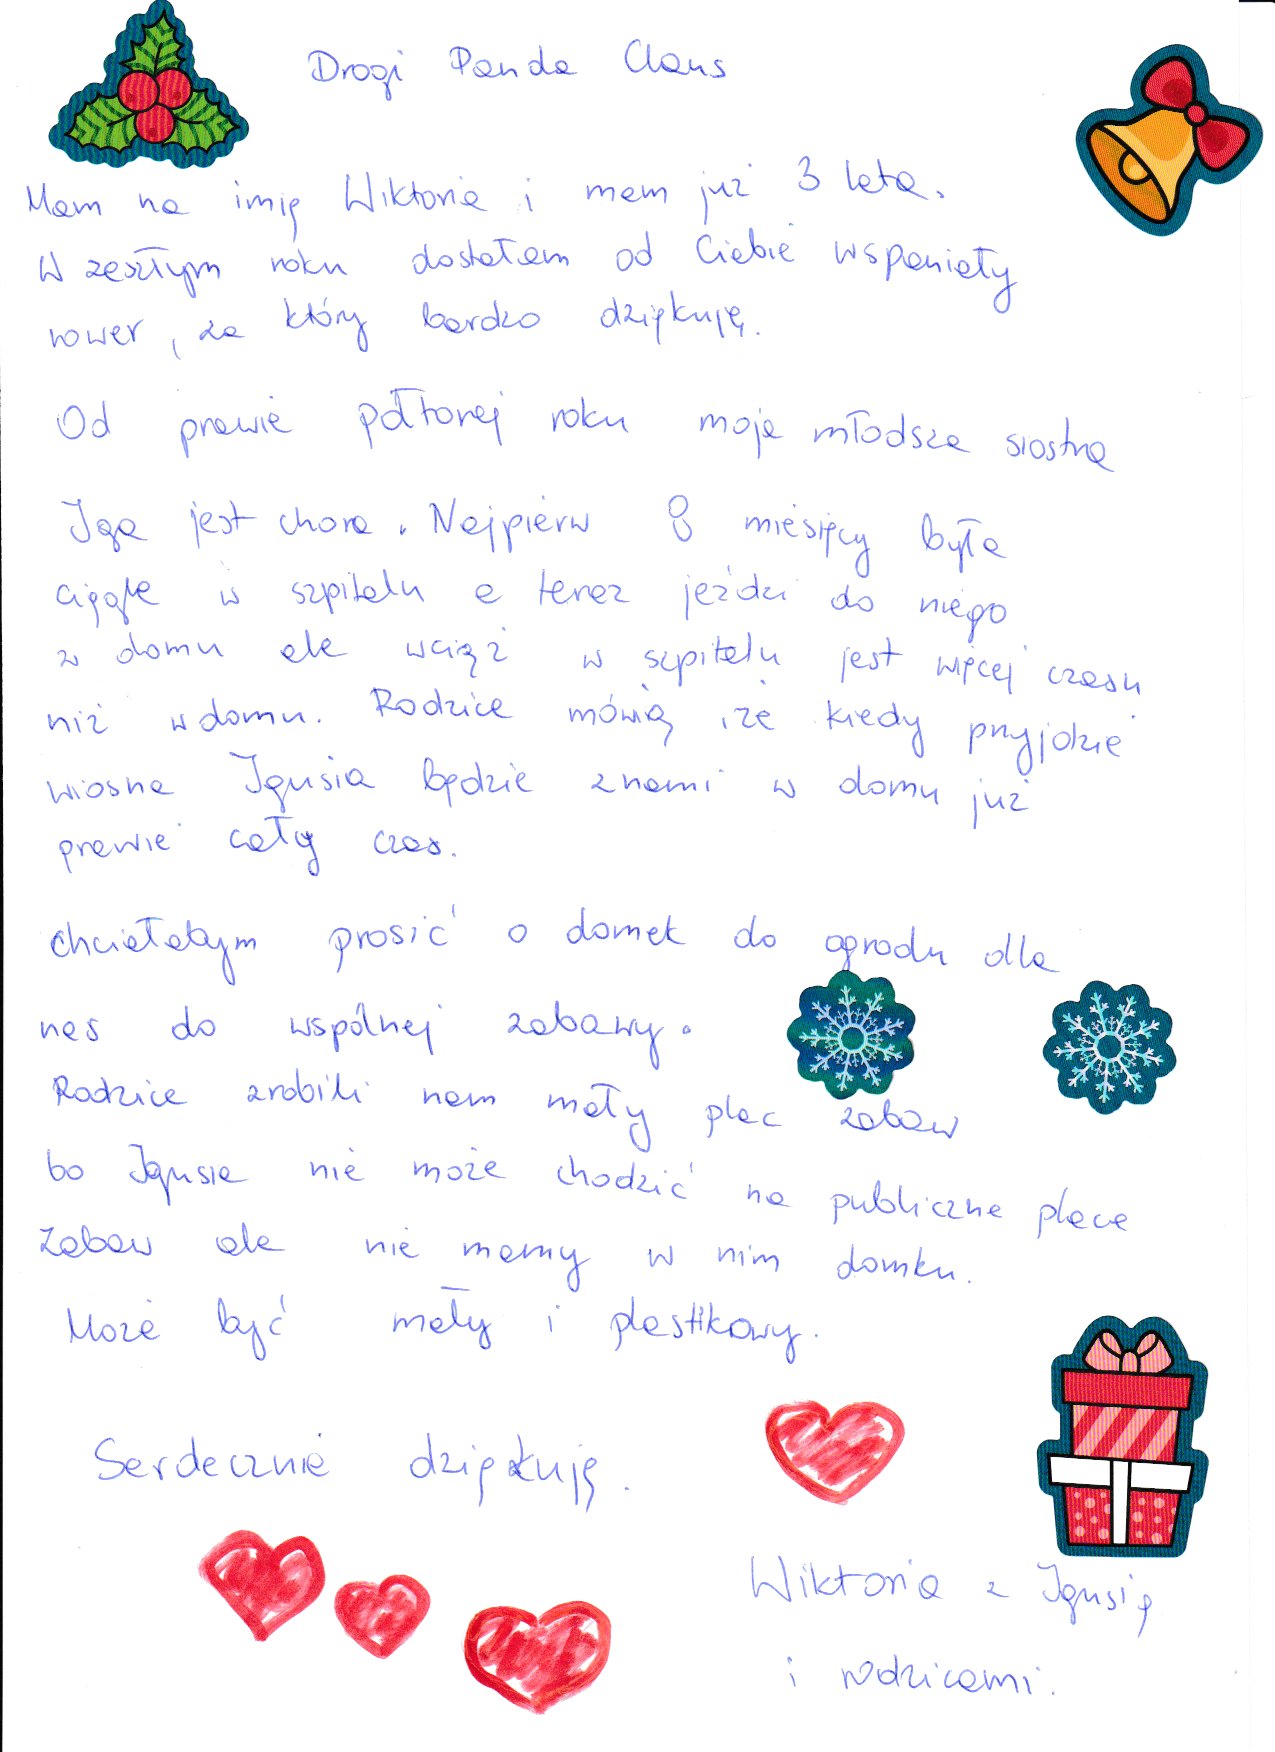 Drogi Panda Claus
Mam na imię Wiktoria i mam już 3 lata.
W zeszłym roku dostałam od Ciebie wspaniały
rower, za który bardzo dziękuję.
Od prawie półtorej roku moja młodsza siostra
Iga jest chora. Najpierw 8 miesięcy była
ciągle w szpitalu a teraz jeździ do niego
z domu ale wciąż w szpitalu jest więcej czasu
niż w domu. Rodzice mówią, że kiedy przyjdzie
wiosna Igusia będzie z nami w domu już
prawie cały czas.
Chciałabym prosić o domek do ogrodu dla
nas do wspólnej zabawy.
Rodzice zrobili nam mały plac zabaw
bo Igusia nie może chodzić na publiczne place
zabaw ale nie mamy w nim domku.
Może być mały i plastikowy.
Serdecznie dziękuję.
Wiktoria z Igusią
i rodzicami.